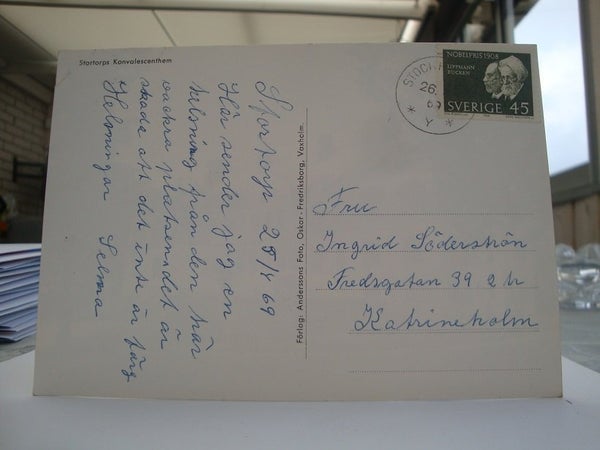 Stortorps Konvalescenthem
Stortorp 25/5 69
Här sender jag en
hälsning från den här
vackra platsen det är
skada att det inte är färg
Helsningar Selma
Förlag: Anderssons Foto, Oskar-Fredriksborg, Vaxholm.
NOBELPRIS 1908
LIPPMANN
EUCKEN
SVERIGE 45
STOCK
26.
69
* Y *
Fru
Ingrid Söderströn
Fredsgatan 39 2 h
Katrineholm